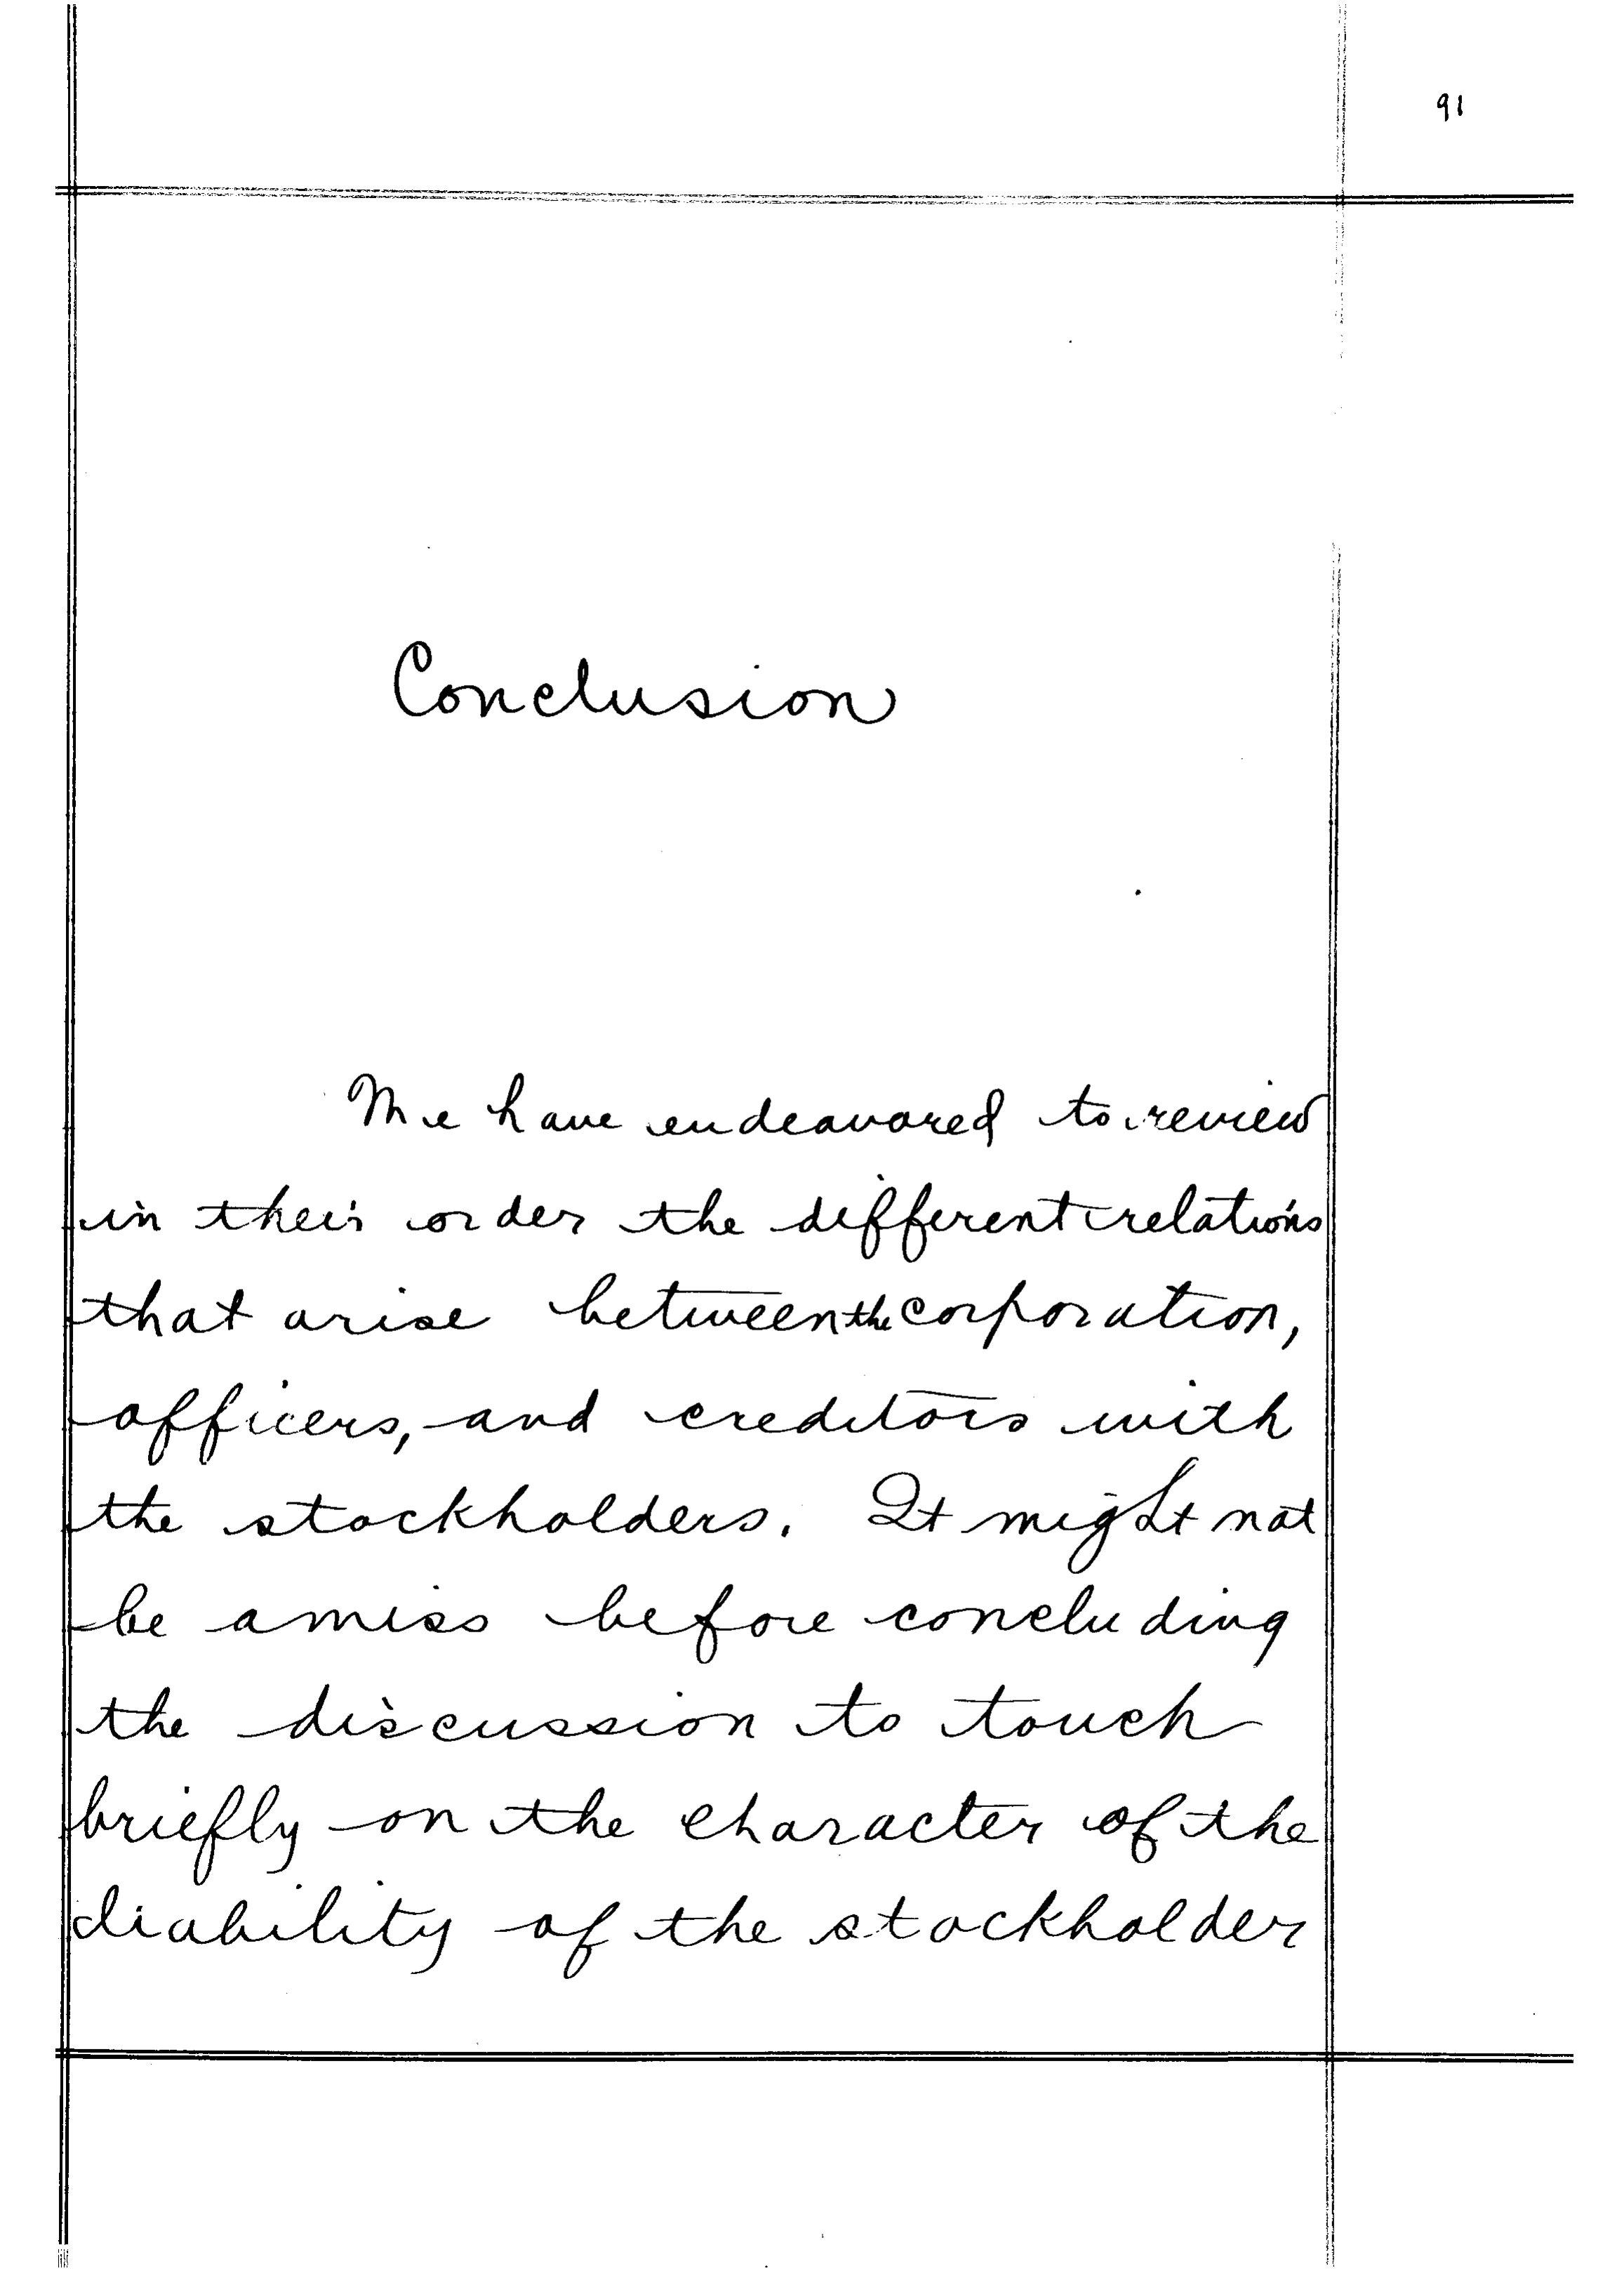 91
Conclusion
We have endeavored to review
in their order the different relations
that arise between the corporation,
officers, and creditors with
the stockholders. It might not
be amiss before concluding
the discussion to touch
briefly on the character of the
liability of the stockholder